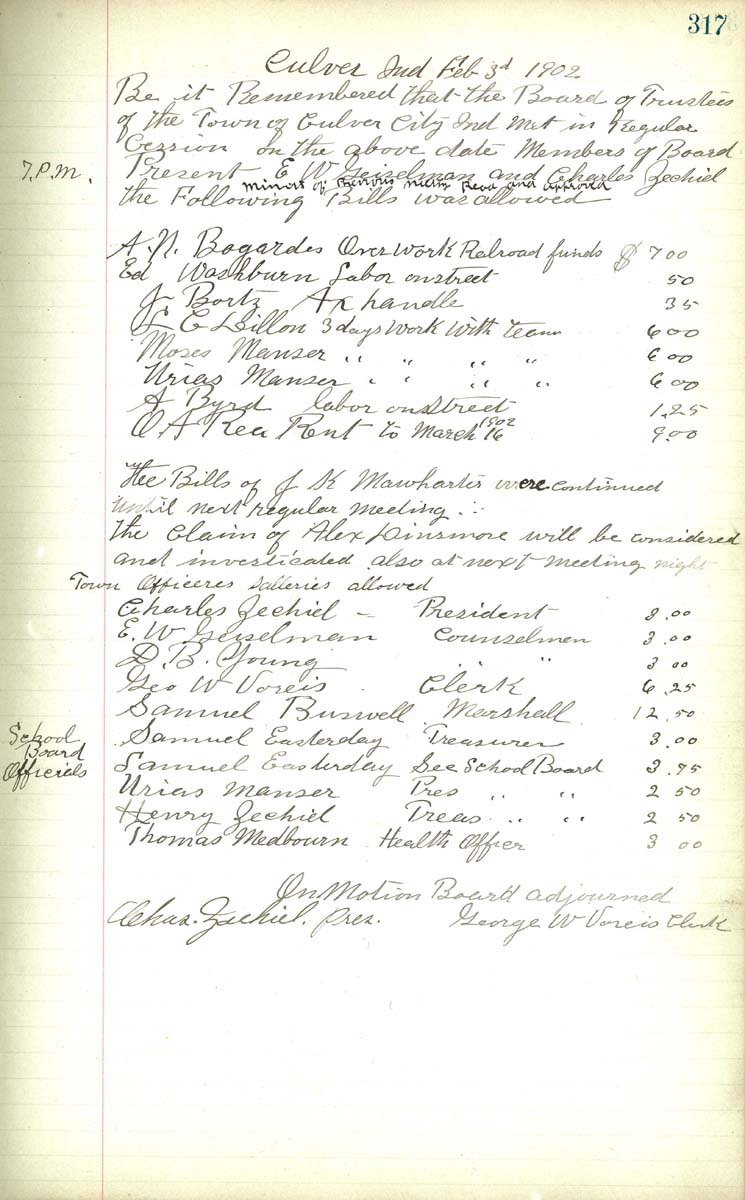 317
Culver Ind Feb 3d 1902
Be it Remembered that the Board of Trustees
of the Town of Culver City Ind Met in Regular
Cession on the above date Members of Board
7.P.M. Present E W Geiselman and Charles Zechiel
minits of Previous meting Read and approved
the Following Bills was allowed
A. N. Bogardes Over Work Ralroad funds $ 7 00
Ed Washburn Labor on street 50
J Bortz Ax handle 35
L C Dillon 3 days Work With team 6 00
Moses Manser " " " " 6 00
Urias Manser " " " " 6 00
A Byrd labor on Street 1.25
O A Rea Rent to March 16 1902 9.00
The Bills of J K Mawharter were continued
until next regular meeting
the Claim of Alex Dinsmore will be considered
and investicated also at next meeting night
Town Officeres Salleries allowed
Charles Zechiel – President 3.00
E. W Geiselman Counselmen 3.00
D. B. Young " " 3 00
Geo W Voreis Clerk 6.25
Samuel Buswell Marshall 12.50
School Board Officials
Samuel Easterday Treasurer 3.00
Samuel Easterday Sec School Board 3.75
Urias Manser Pres " " 2 50
Henry Zechiel Treas " " 2 50
Thomas Medbourn Health Offier 3 00
On Motion Board adjourned
Chas. Zechiel. Pres. George W Voreis Clerk